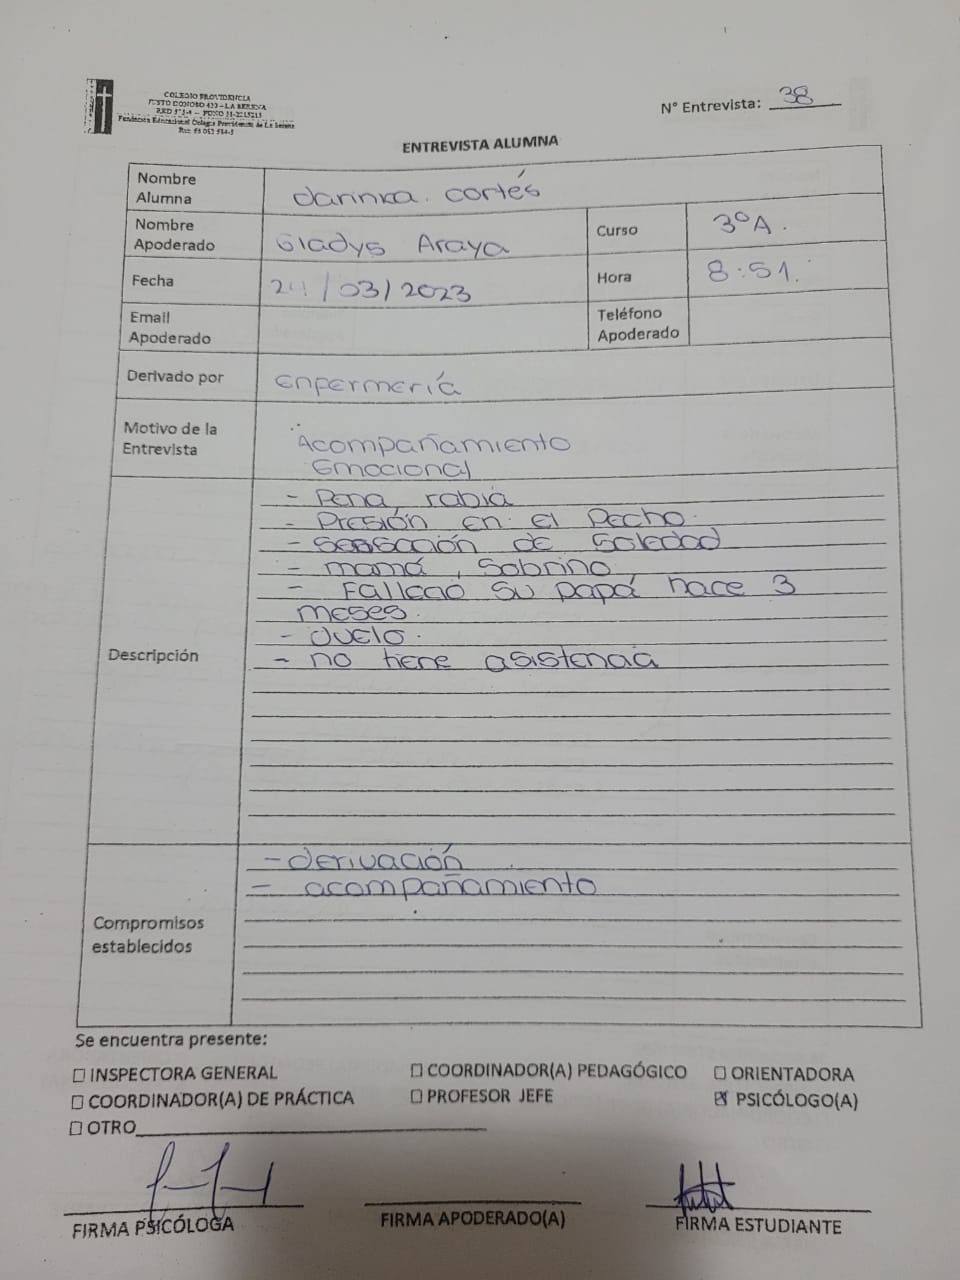 COLEGIO PROVIDENCIA
JUSTO DONOSO 420 – LA SERENA
Fundación Educacional Colegio Providencia de La Serena
N° Entrevista: 38
ENTREVISTA ALUMNA
Nombre Alumna darinka. cortés
Nombre Apoderado Gladys Araya Curso 3°A.
Fecha 24/03/2023 Hora 8:51.
Email Apoderado Teléfono Apoderado
Derivado por Enfermería
Motivo de la Entrevista Acompañamiento
Emocional
Descripción
- Pena, rabia
- Presión en el Pecho.
- Sensación de Soledad
- mamá, Sobrino
- Falleció su papá hace 3
meses.
- Duelo.
- no tiene asistencia
Compromisos establecidos
- derivación
- acompañamiento
Se encuentra presente:
☐ INSPECTORA GENERAL ☐ COORDINADOR(A) PEDAGÓGICO ☐ ORIENTADORA
☐ COORDINADOR(A) DE PRÁCTICA ☐ PROFESOR JEFE ☒ PSICÓLOGO(A)
☐ OTRO
FIRMA PSICÓLOGA FIRMA APODERADO(A) FIRMA ESTUDIANTE